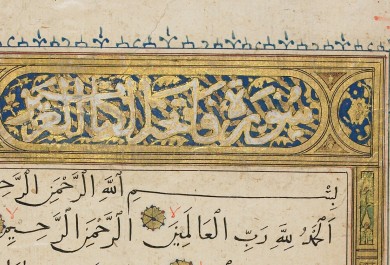 سورة فاتحة الكتاب
بِسْمِ اللَّهِ الرَّحْمَنِ الرَّحِ
اَلْحَمْدُ لِلَّهِ رَبِّ الْعَالَمِينَ الرَّحْمَنِ الرَّحِيمِ